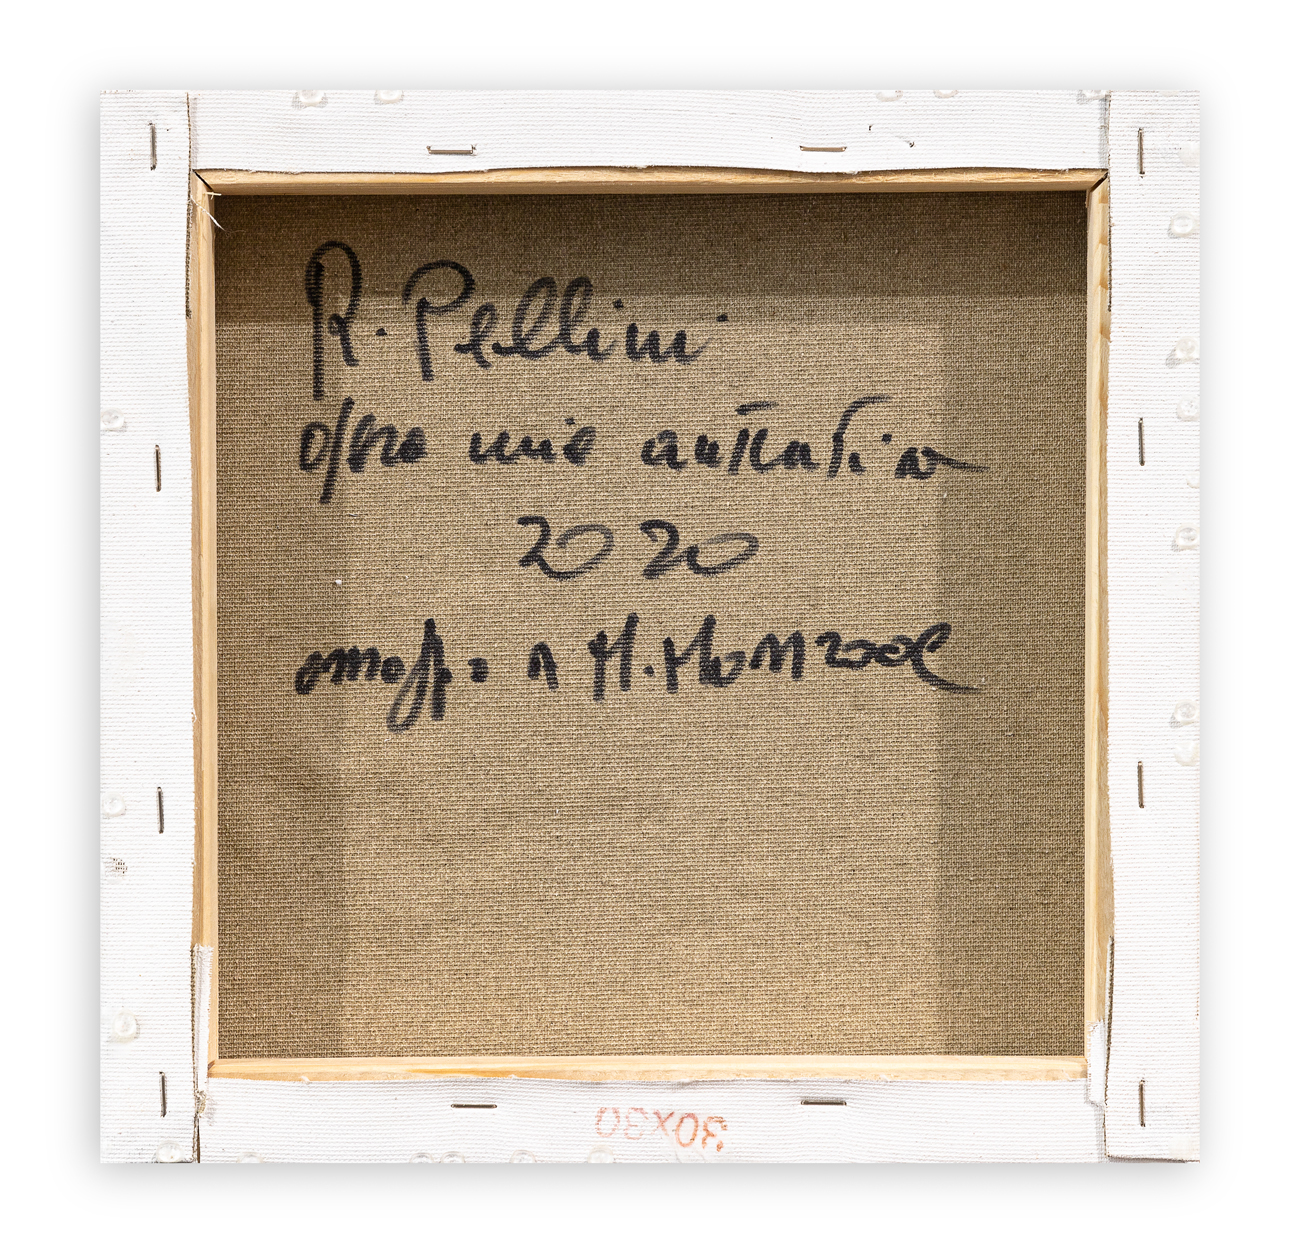 R. Pellini
opera mia autentica
2020
omaggio a M. Monroe
30x30